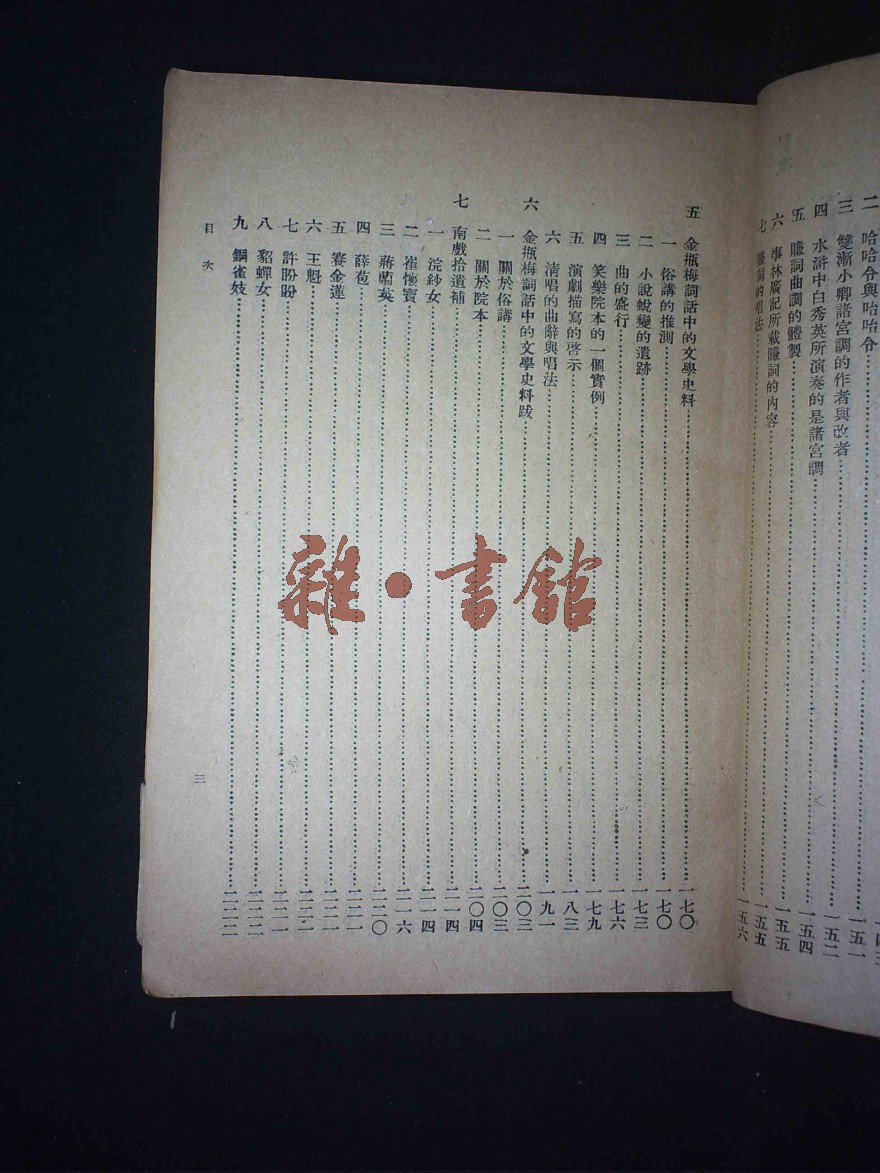 二 哈哈令與哈哈令
三 雙漸小卿諸宮調的作者與改者 一五一
四 水滸中白秀英所演奏的是諸宮調 一五二
五 賺詞曲調的體製 一五四
六 事林廣記所載賺詞的內容 一五五
七 賺詞的唱法 一五五
一五六
五 金瓶梅詞話中的文學史料 一七〇
一 俗講的推測 一七〇
二 小說蛻變的遺跡 一七三
三 曲的盛行 一七六
四 笑樂院本的一個實例 一七九
五 演劇描寫的啓示 一八三
六 清唱的曲辭與唱法 一九一
六 金瓶梅詞話中的文學史料跋 二〇三
一 關於俗講 二〇三
二 關於院本 二〇四
七 南戲拾遺補 二一四
一 浣紗女 二一四
二 崔懷寶 二一六
三 蔣蘭英 二二〇
四 薛苞 二二一
五 賽金蓮 二二一
六 王魁 二二一
七 許盼盼 二二一
八 貂蟬女 二二二
九 銅雀妓 二二二
目次 三
雜·書館